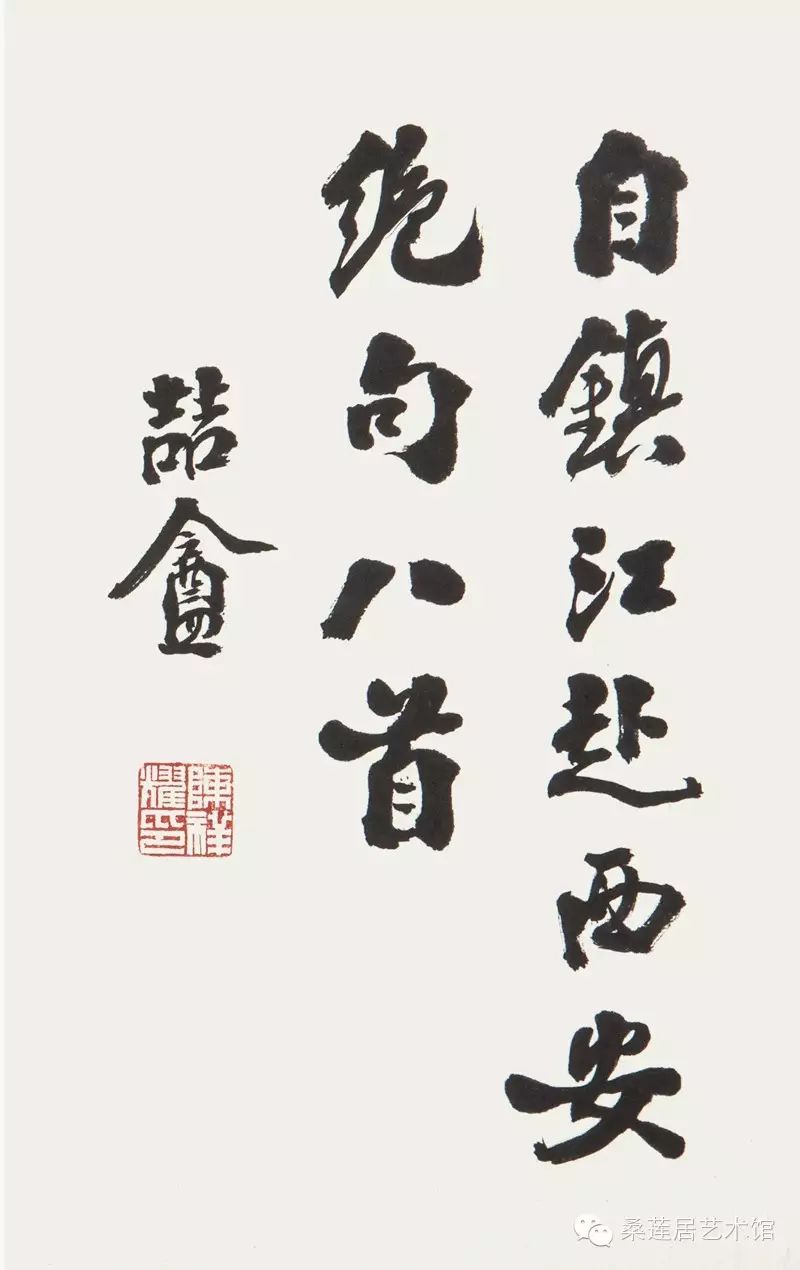 自鎮江赴西安
絶句八首
喆盦
陳祥耀印
桑莲居艺术馆